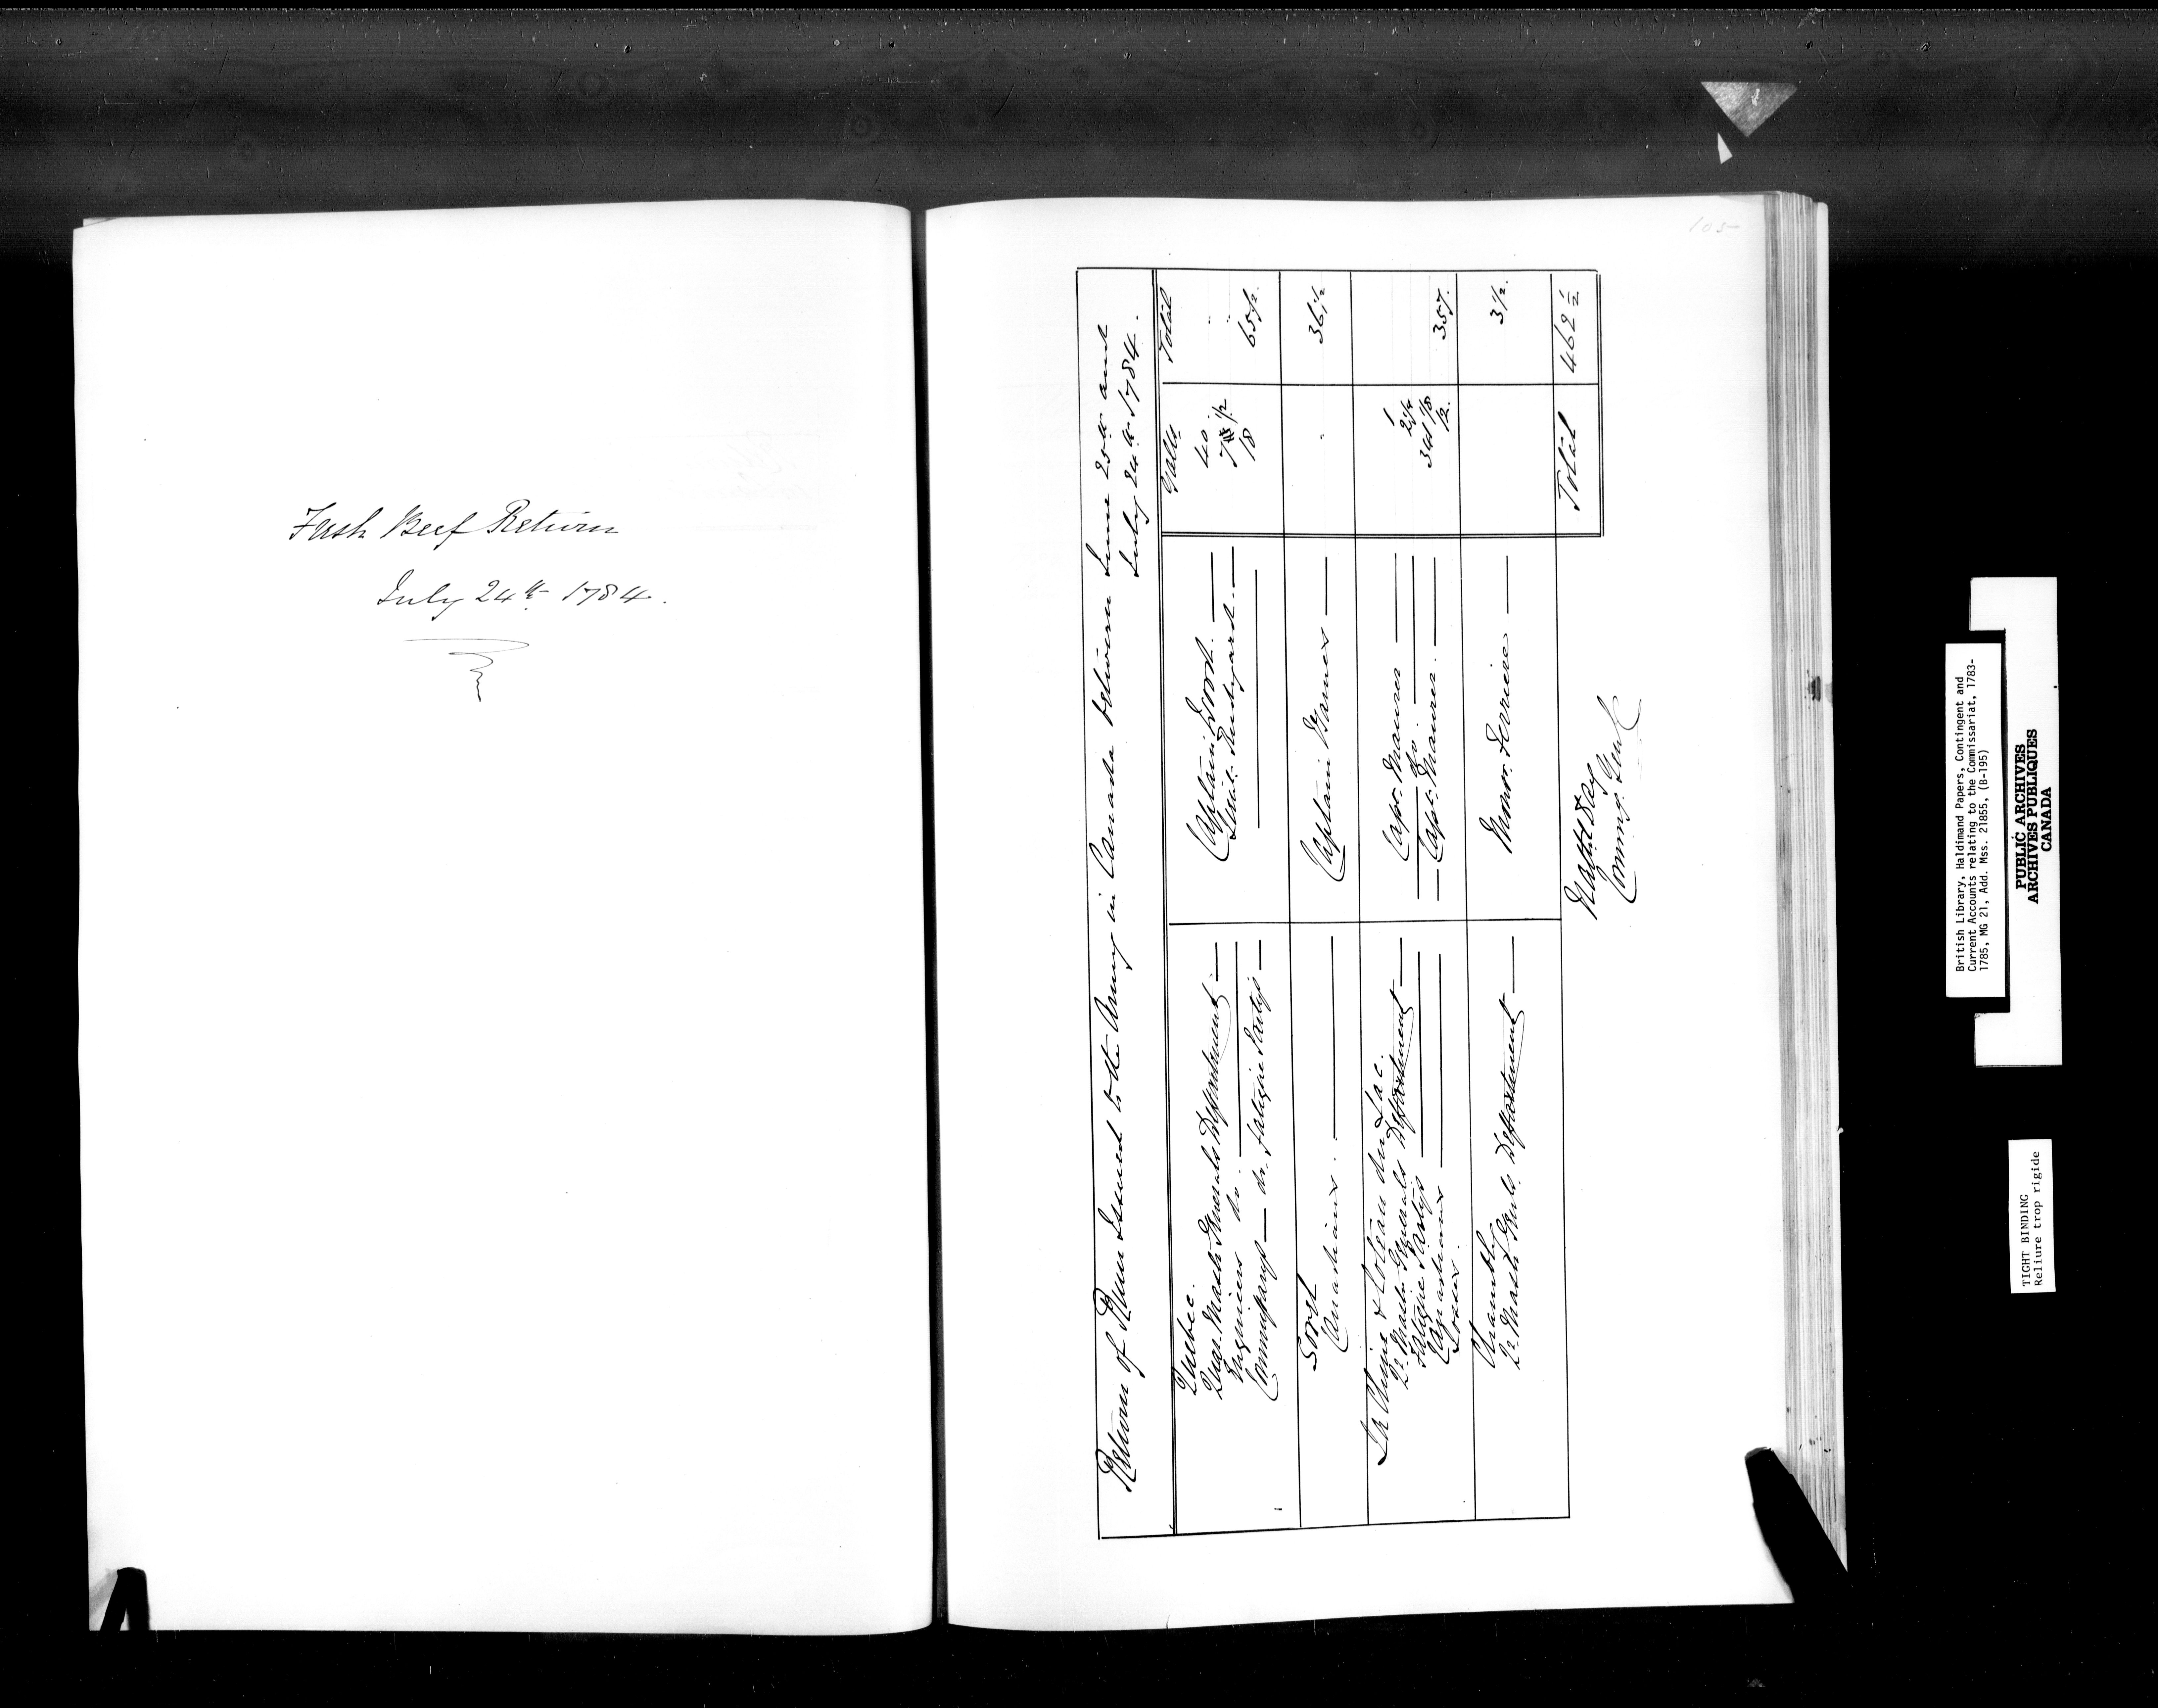 Fresh Beef Return
July 24th 1784.
105
Return of Rum Issued to the Army in Canada between June 25th and
July 24th 1784.
Galls Total
Quebec.
Quar. Mastr Generals Department Captain Frost. 40 "
Engineers do Lieut. Rudyard. 7 1/2 "
Commissarys do. Fatigue Partys 18 65 1/2.
Sorel
Canadians. Captain Barnes " 36 1/2
La Chine & Coteau du Lac.
Qr. Mastr Generals Department Capt. Maurer 1
Fatigue Partys do. 2 1/4
Canadians Capt. Maurer. 341 1/8
Losses. 12. 357.
Chambly
Qr. Mastr Genls. Department Monsr. Ferriere 3 1/2.
Total 462 1/2
Nathl Day
Commy Genl
British Library, Haldimand Papers, Contingent and
Current Accounts relating to the Commissariat, 1783-
1785, MG 21, Add. Mss. 21855, (B-195)
PUBLIC ARCHIVES
ARCHIVES PUBLIQUES
CANADA
TIGHT BINDING
Reliure trop rigide